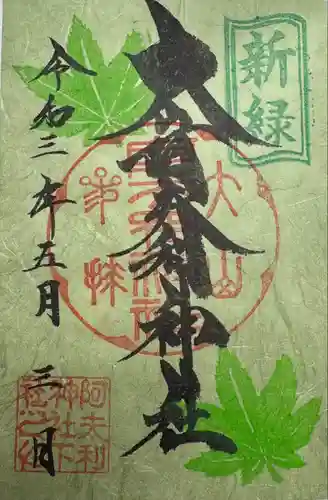 新緑
大山阿夫利神社
令和三年五月三日
大山
阿夫利
神社下
社之印